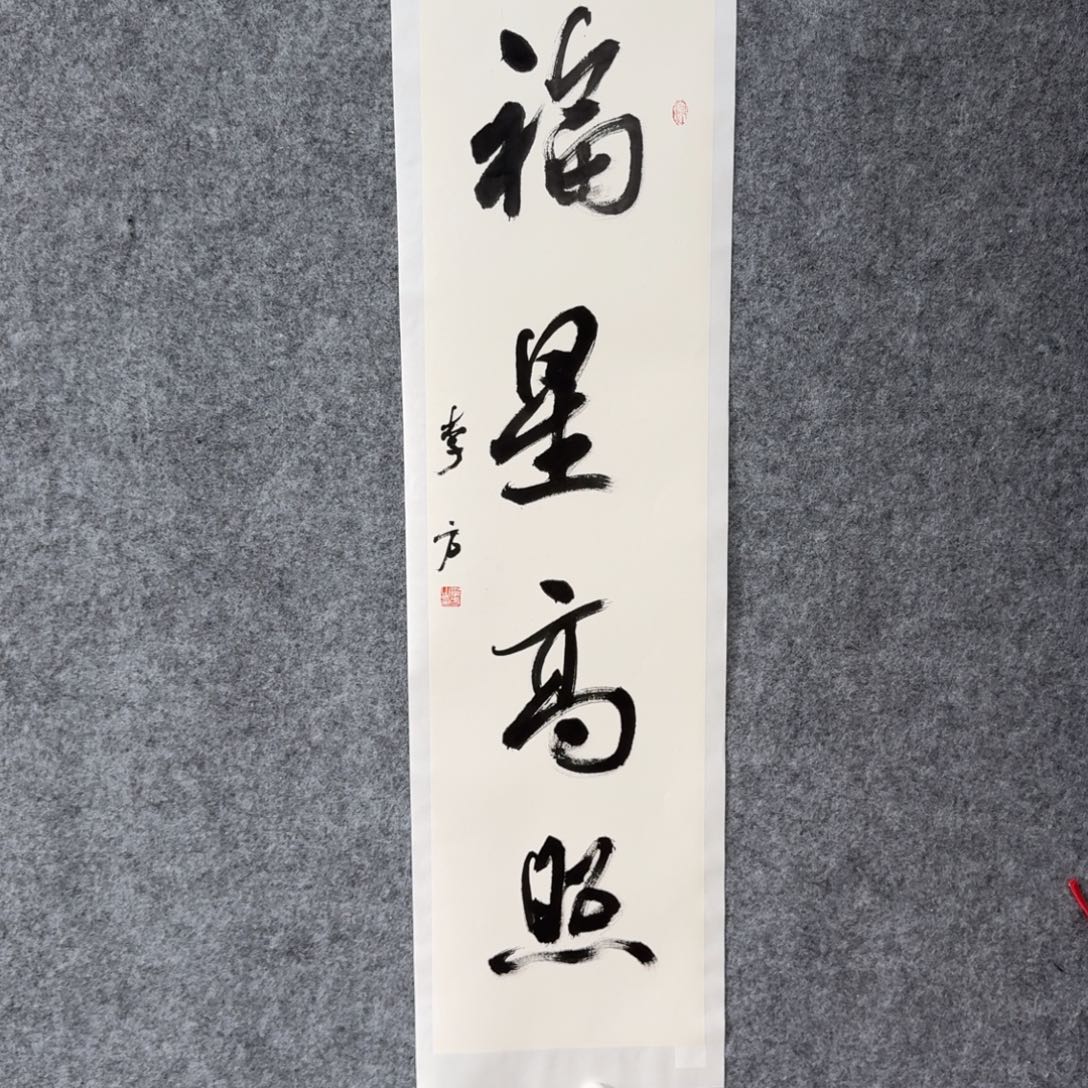 福星高照
李方